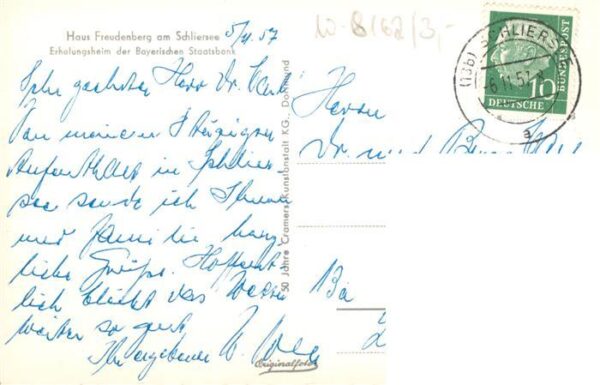 Haus Freudenberg am Schliersee
Erholungsheim der Bayerischen Staatsbank
5/11.57
Sehr geehrter Herr Dr.
Von meinem
Aufenthalt in Schlier-
see sende ich Ihnen
und Familie herz-
liche Grüße. Hoffent-
lich bleibt das Wetter
weiter so gut.
Ihr ergebener
50 Jahre Cramers Kunstanstalt KG., Dortmund
Originalfoto
W-8162/3,-
Herrn
Dr. med
Ba
(13b) SCHLIERS
-6.11.57.8
a
10
DEUTSCHE
BUNDESPOST